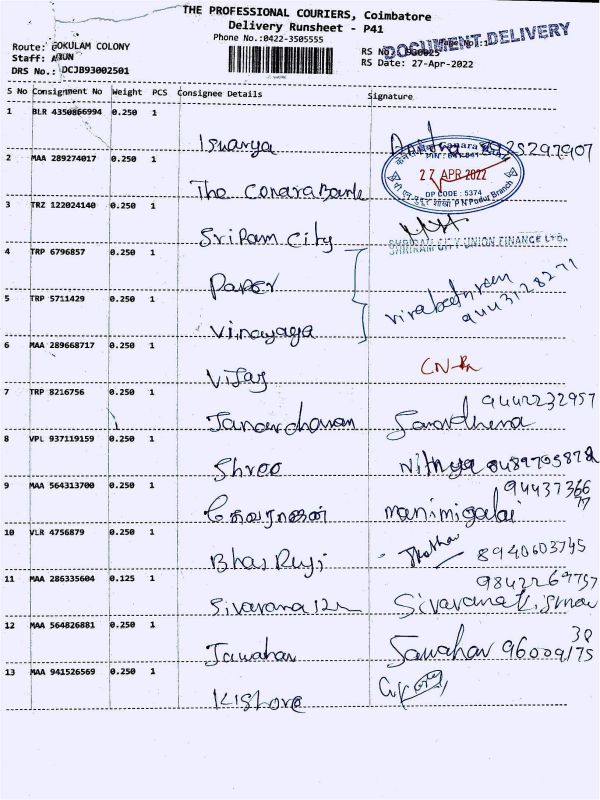 THE PROFESSIONAL COURIERS, Coimbatore
Delivery Runsheet - P41
Phone No.:0422-3505555
DOCUMENT DELIVERY
Route: GOKULAM COLONY
Staff: ARUN
DRS No.: DCJB93002501
RS No
RS Date: 27-Apr-2022
S No Consignment No Weight PCS Consignee Details Signature
1 BLR 4350866994 0.250 1
Iswarya 8925297907
2 MAA 289274017 0.250 1
The Canara Bank
27 APR 2022
DP CODE : 5374
P N Pudur Branch
3 TRZ 122024140 0.250 1
SriRam City
SHRIRAM CITY UNION FINANCE LTD.
4 TRP 6796857 0.250 1
Paper
5 TRP 5711429 0.250 1
Vinayaga
9443128271
6 MAA 289668717 0.250 1
Vijay
7 TRP 8216756 0.250 1
Janardhanan
9442232957
8 VPL 937119159 0.250 1
Shree Nithya
9 MAA 564313700 0.250 1
manimigalai 9443736677
10 VLR 4756879 0.250 1
8940603745
11 MAA 286335604 0.125 1
9842269757
12 MAA 564826881 0.250 1
Jawahar Jawahar 9600917538
13 MAA 941526569 0.250 1
Kishore